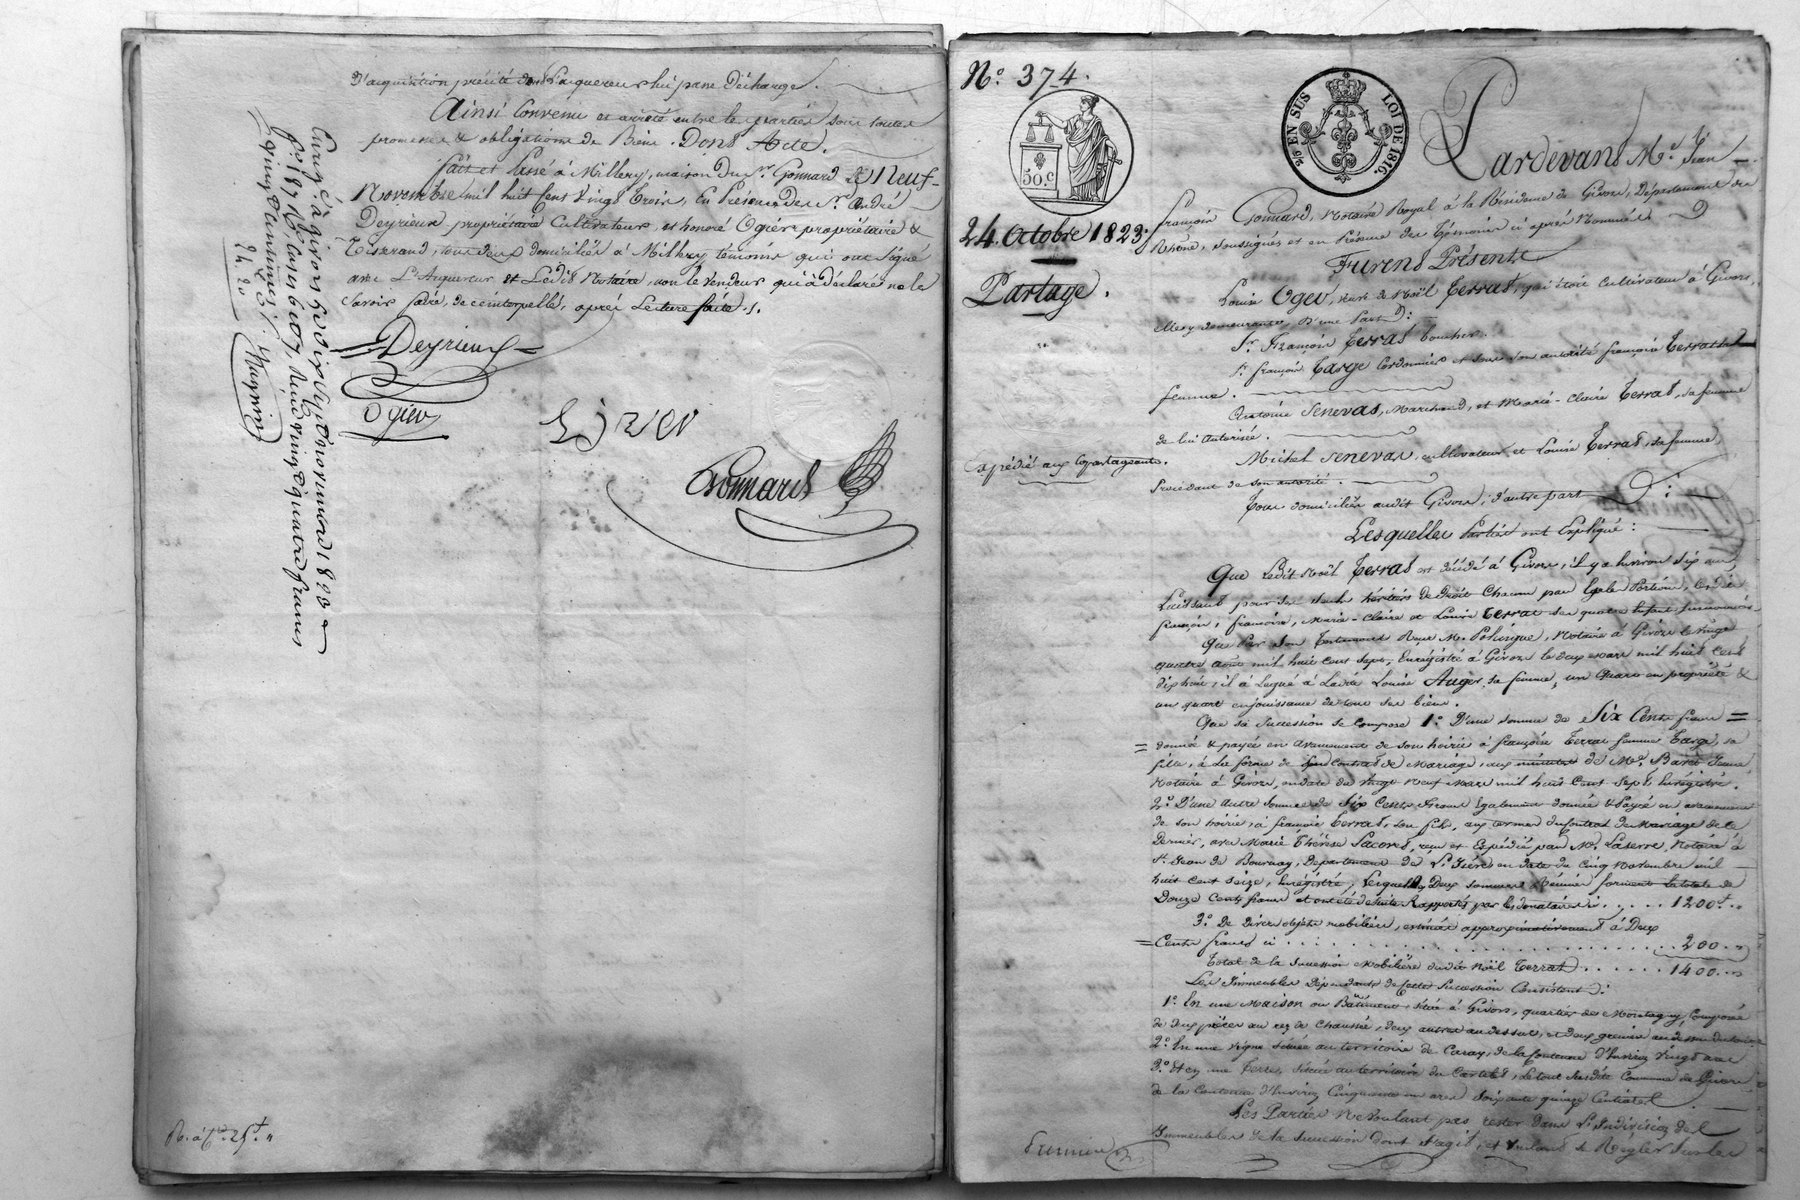 D'acquisition précité dont l'acquereur lui passe Décharge.
Ainsi Convenu et arrêté entre les parties sous toutes
promesses & obligations de Biens. Dont Acte.
fait et Passé à Millery, maison du Sr. Gonnard le Neuf
Novembre mil huit Cent Vingt Trois, En Présence des Srs. André
Deyrieux propriétaire Cultivateur et honoré Ogier propriétaire &
Tisserand, tous deux domiciliés à Millery témoins qui ont Signé
avec L'Acquereur et Ledit Notaire, non le Vendeur qui a déclaré ne le
Savoir faire, de ce interpellé, après Lecture faite./.
Deyrieux
Ogier
Gonnard
Enreg. à Givors le dix Sept Novembre 1823
fo. 187 Ro. Cases 6 et 7, Reçu vingt quatre francs
24. 20
R. à Cte. 25f. "
No. 374.
50.c
25 EN SUS
LOI DE 1816.
24. Octobre 1823.
Partage.
Expédié aux Copartageants.
Pardevant Me. Jean
François Gonnard, Notaire Royal à la Résidence de Givors, Département du
Rhône, soussignés et en Présence des témoins ci après Nommés
Furent Présents
Louise Oger, veuve de Noël Terrat, qui étoit Cultivateur à Givors,
elle y demeurante, D'une Part :
Sr. François Terrat boucher.
Sr. françois Targe Cordonnier et sous son autorité françoise Terrat sa
femme.
Antoine Senevas, Marchand, et Marie-Claire Terrat, sa femme
de lui Autorisée.
Michel Senevas, cultivateur, et Louise Terrat, sa femme,
Procédant de son autorité.
Tous domiciliés audit Givors, d'autre part :
Lesquelles Parties ont Expliqué :
Que Ledit Noël Terrat est décédé à Givors, il y a Environ six ans,
Laissant pour ses seuls héritiers de Droit Chacun par Egale Portion, lesdits
françois, françoise, Marie-Claire et Louise Terrat ses quatre Enfans surnommés.
Que Par son Testament Reçu Me. , Notaire à Givors le Vingt
quatre août mil huit cent sept, Enregistré à Givors le deux mars mil huit cent
dix huit, il a Légué à Ladite Louise Auger, sa femme, un Quart en propriété &
un quart en jouissance de tous ses biens.
Que sa Succession se Compose 1°. D'une somme de Six Cents francs
donnée & payée en avancement de son hoirie à françoise Terrat femme Targe, sa
fille, à la forme de son Contrat de Mariage, aux minutes de Me. Jeune,
Notaire à Givors, en date du Vingt Neuf Mars mil huit Cent Sept, Enregistré.
2°. D'une autre Somme de Six Cents francs Egalement donnée & Payée en avancement
de son hoirie, à françois Terrat, son fils, aux termes du Contrat de Mariage de ce
Dernier, avec Marie Thérèse , reçu et Expédié par Me. Laserve, Notaire à
St. Jean de Bournay, Département de L'Isère en date du Cinq Novembre mil
huit cent seize, Enregistré, Lesquelles Deux sommes Réunies forment le total de
Douze Cents francs et ont été de suite Rapportés par les donataires ci . . . . . 1200f. "
3°. De divers objets mobiliers, estimés approximativement à Deux
Cents francs ci . . . . . . . . . . . . . . . . . . 200. "
Total de la Succession Mobilière dudit Noël Terrat . . . . . . 1400. "
Les Immeubles Dépendants de Cette Succession Consistent :
1°. En une Maison ou Bâtiment, située à Givors, quartier de Montagny, Composée
de deux pièces au rez de Chaussée, deux autres au dessus, et deux greniers au dessus
2°. En une vigne située au territoire de , de la Contenue d'Environ vingt
3°. Et en une Terre, située au territoire du , le tout susdite Commune de Givors
de la Contenue d'Environ Cinquante un ares Soixante quinze Centiares
Les Parties Ne Voulant pas rester dans L'Indivision des
Immeubles de la Succession dont s'agit, et Voulant se Régler sur les
Premier